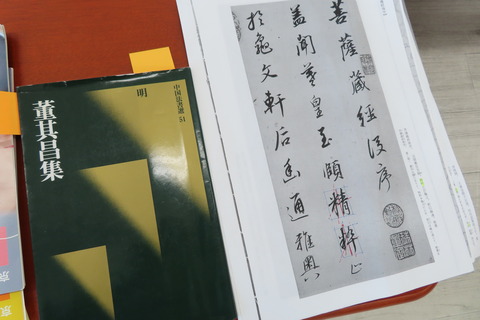 中国法書選 51
明
董其昌集
菩薩藏經後序
蓋聞羲皇至賾精粹止
於龜文軒后幽通雅奧